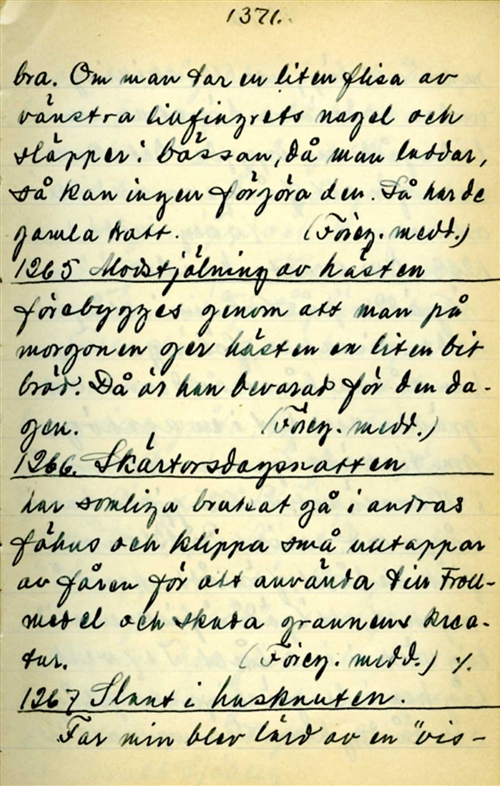 1371.
bra. Om man tar en liten flisa av
vänstra lillfingrets nagel och
släpper i bössan, då man laddar,
så kan ingen förgöra den. Så har de
gamla haft. (Föreg. medd.)
1265 Modstjälning av hästen
förebygges genom att man på
morgonen ger hästen en liten bit
bröd. Då är han bevarad för den da-
gen. (Föreg. medd.)
1266. Skärtorsdagsnatten
har somliga brukat gå i andras
fähus och klippa små ulltappar
av fåren för att använda till Troll-
medel och skada grannens krea-
tur. (Föreg. medd.) ·/.
1267 Slant i husknuten.
Far min blev lärd av en "vis-